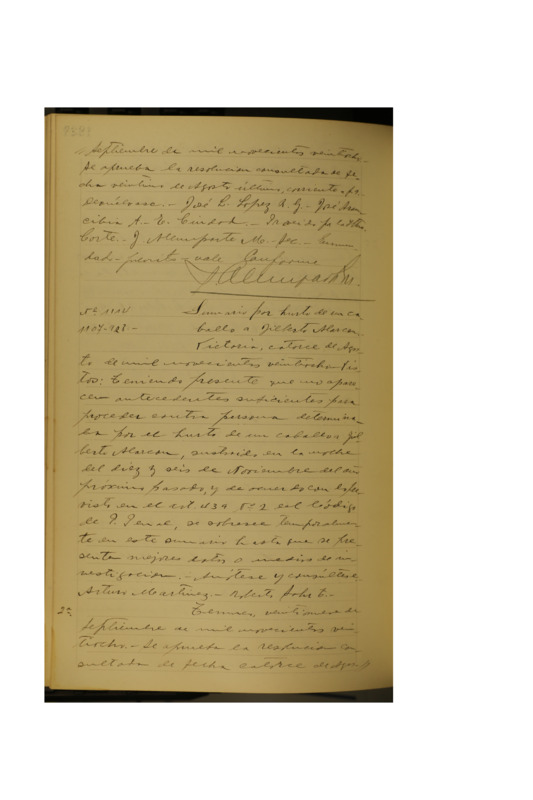 Septiembre de mil novecientos veintiocho.-
Se aprueba la resolucion consultada de fe-
cha veintiuno de Agosto último, corriente a fs.
Devuélvase.- José L. Lopez A. G.- José
A.- E. Ciudad.- Proveído por la Iltma.
Corte.- J. Sec.-
dado- vale Conforme
Nº 111V
1107-928-
Sumario por hurto de un ca-
ballo a Gilberto Alarcon.
Victoria, catorce de Agos-
to de mil novecientos veintiocho. Vis-
tos: Teniendo presente que no apare-
cen antecedentes suficientes para
proceder contra persona determina-
da por el hurto de un caballo a Gil-
berto Alarcon, sustraido en la noche
del diez y seis de Noviembre del año
próximo pasado, y de acuerdo con lo pre-
visto en el art 439 Nº 2 del Código
de P. Penal, se sobresee temporalmen-
te en este sumario hasta que se pre-
senten mejores datos o medios de in-
vestigacion.- Anótese y consúltese.
Arturo Martinez.- Roberto
2º.
Temuco, veintinueve de
Septiembre de mil novecientos vein-
tiocho.- Se aprueba la resolucion con-
sultada de fecha catorce de Agosto